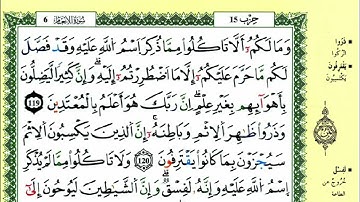 6 سُورَةُ الأَنْعَامِ حِزْب 15
وَمَا لَكُمُۥٓ أَلَّا تَاكُلُوا۟ مِمَّا ذُكِرَ اَسْمُ اُللَّهِ عَلَيْهِ وَقَد فَّصَّلَ
لَكُم مَّا حَرَّمَ عَلَيْكُمُۥٓ إِلَّا مَا اَضْطُرِرْتُمُۥٓ إِلَيْهِ وَإِنَّ كَثِيرًا لَّيَضِلُّونَ
بِأَهْوَآئِهِم بِغَيْرِ عِلْمٍ اِنَّ رَبَّكَ هُوَ أَعْلَمُ بِالْمُعْتَدِينَ 119
وَذَرُوا۟ ظَٰهِرَ اَلِاثْمِ وَبَاطِنَهُۥٓ إِنَّ اَلذِينَ يَكْسِبُونَ اَلِاثْمَ
سَيُجْزَوْنَ بِمَا كَانُوا۟ يَقْتَرِفُونَ 120 وَلَا تَاكُلُوا۟ مِمَّا لَمْ يُذْكَرِ
اِسْمُ اُللَّهِ عَلَيْهِ وَإِنَّهُۥ لَفِسْقٌ وَإِنَّ اَلشَّيَٰطِينَ لَيُوحُونَ إِلَىٰٓ
ذَرُوا
اتركوا
يَقْتَرِفُونَ
يكتسبون
لَفِسْقٌ
خروج عن
الطاعة